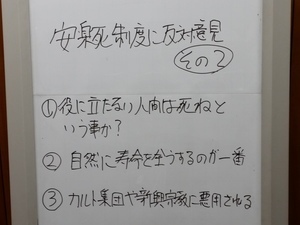 安楽死制度に反対意見
その2
①役に立たない人間は死ねと
いう事か?
②自然に寿命を全うするのが一番
③カルト集団や新興宗教に悪用される